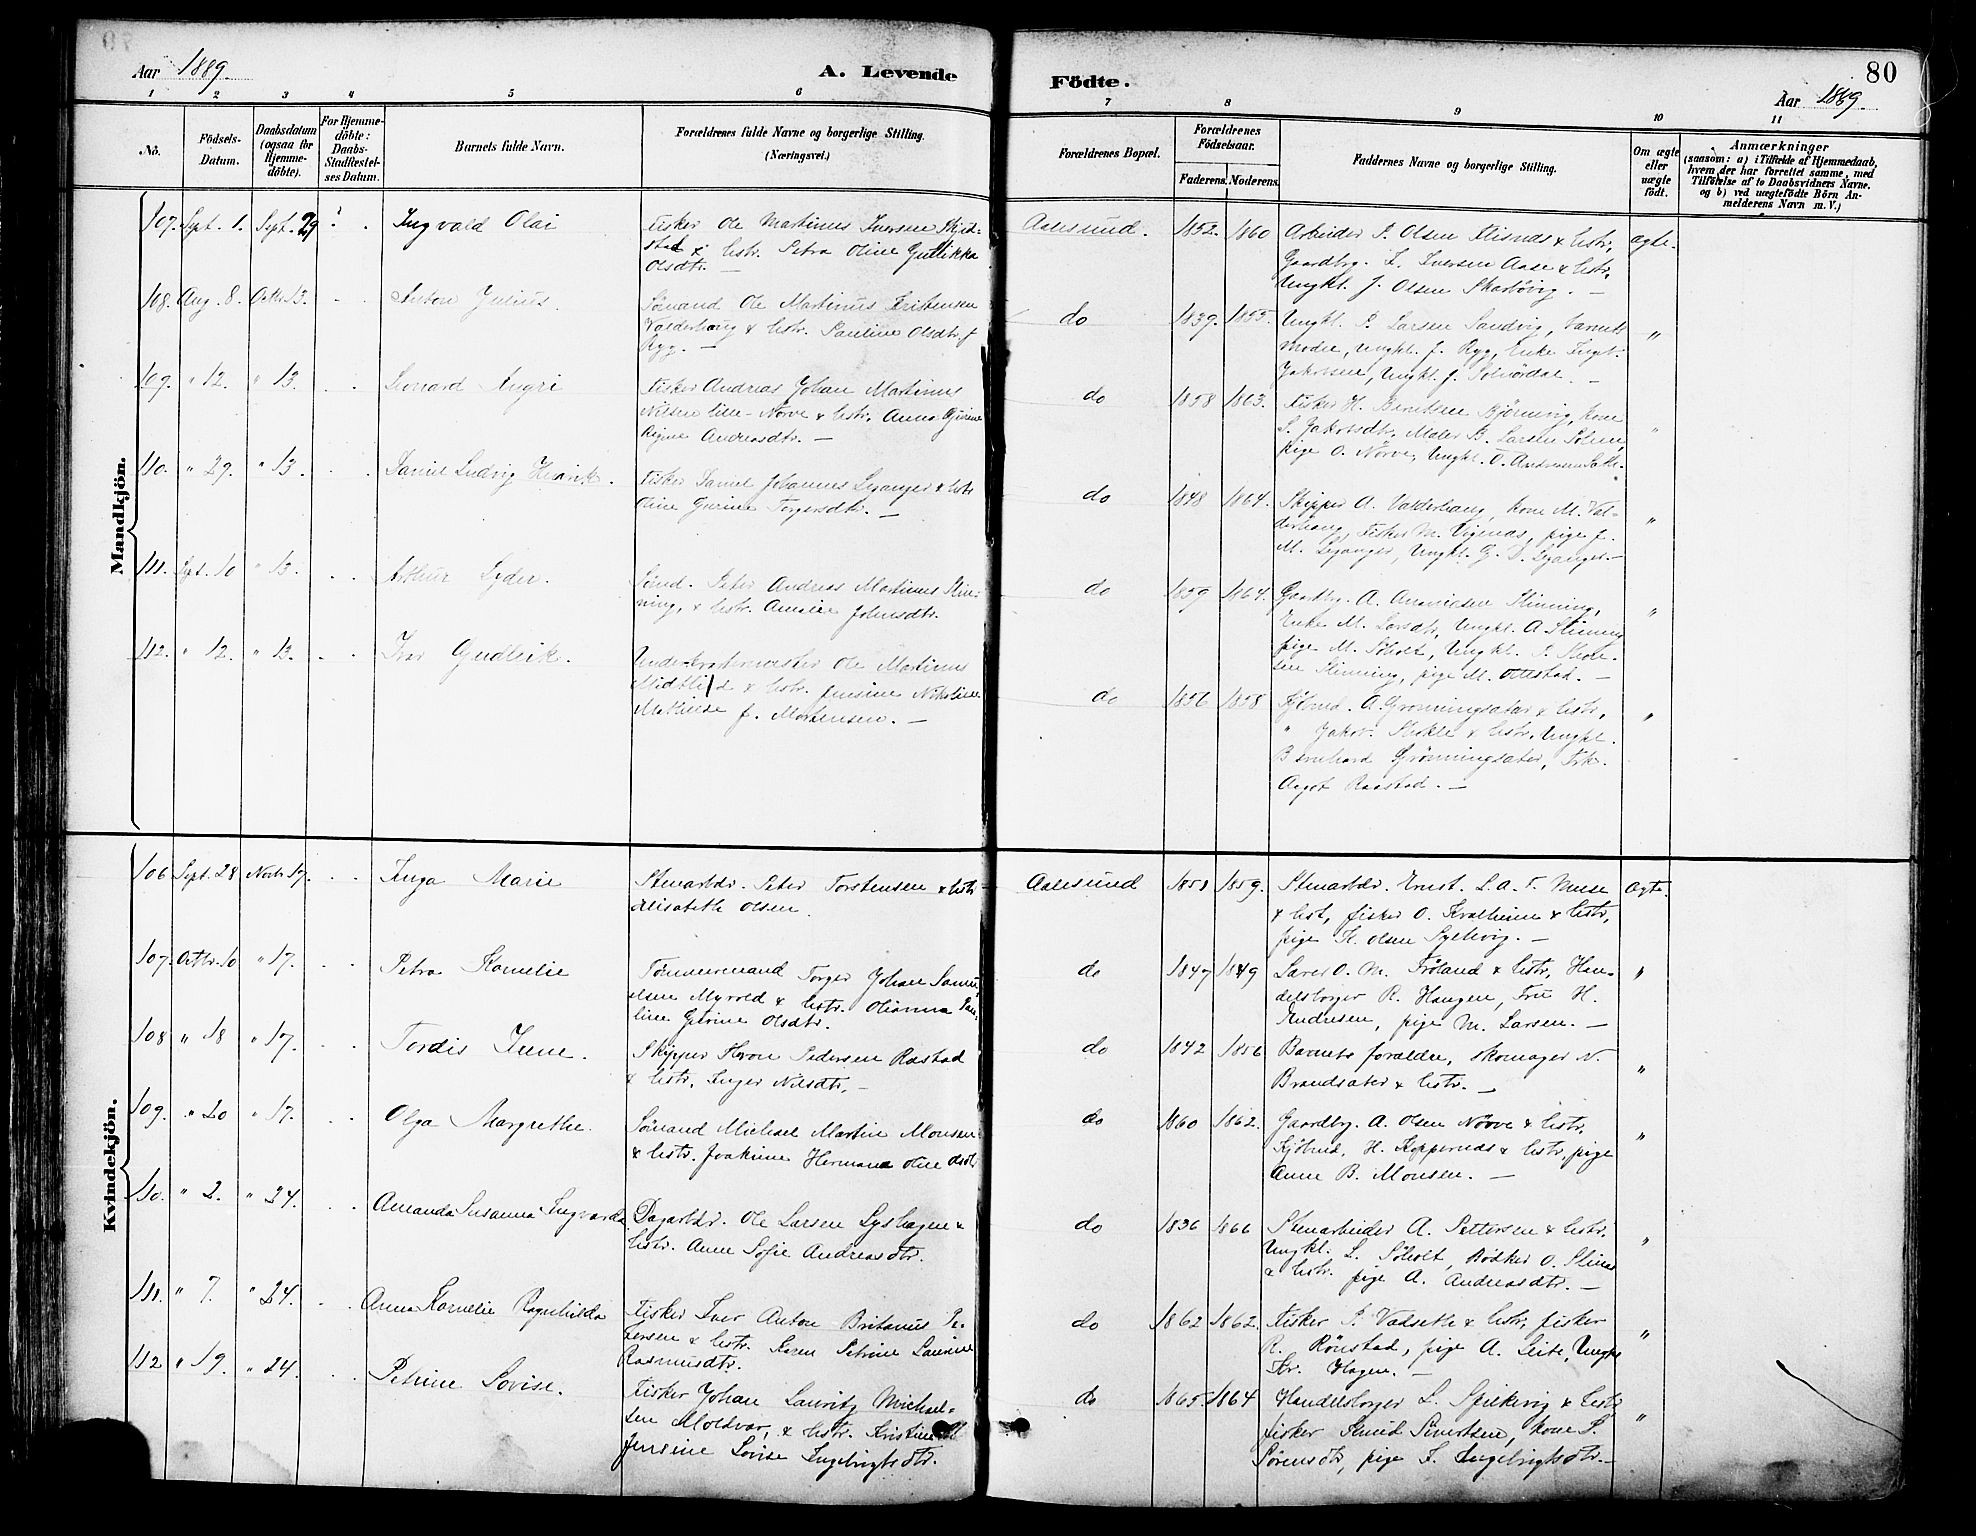 Aar 1889.
A. Levende
Födte.
80
Aar 1889.
1 2 3 4 5 6 7 8 9 10 11
No.
Födsels-Datum.
Daabsdatum (ogsaa for Hjemme-döbte).
For Hjemme-döbte: Daabs-Stadfæstel-ses Datum.
Barnets fulde Navn.
Forældrenes fulde Navne og borgerlige Stilling. (Næringsvei.)
Forældrenes Bopæl.
Forældrenes Födselsaar.
Faderens. Moderens.
Faddernes Navne og borgerlige Stilling.
Om ægte eller uægte födt.
Anmærkninger
(saasom: a) i Tilfælde af Hjemmedaab, hvem der har forrettet samme, med Tilföielse af to Daabsvidners Navne. og b) ved uægtefödte Börn An-melderens Navn m. V.)
Mandkjön.
107. Sept. 1. Sept. 29 Ingvald Olai
Fisker Ole Martinus Iversen
& Hstr. Petra Oline Gullikka
Olsdtr. —
Aalesund. 1852. 1860
Arbeider P. Olsen Flisnæs & Hstr,
Gaardbr. I. Iversen Aase & Hstr,
Ungkl. J. Olsen —
ægte.
108. Aug. 8. Octbr. 13. Anton Julius.
Sömand Ole Martinus Kristensen
Valderhaug & Hstr. Pauline Olsdtr. f
Ryg. —
do 1839. 1855.
Ungkl. P. Larsen Sandvig, barnets
moder, Ungkl. J. Ryg, Enke Ingeb.
Jakobsen, Ungkl. J. —
"
109. " 12. " 13. Leonard Angri
Fisker Andreas Johan Martinus
Nilsen Lille-Nörve & Hstr, Anna
Regine Andreasdtr. —
do 1858 1863.
Fisker H. Berntsen Björnvig, kone
S. Jakobsdtr, Maler B. Larsen
pige O. Nörve, Ungkl. O. Andreasen
"
110. " 29. " 13. Daniel Ludvig Henrik.
Fisker Daniel Johannes Leganger & Hstr
Oline Gurine Torgersdtr. —
do 1848 1864.
Skipper A. Valderhaug, kone M. Val-
derhaug, Fisker M. Vigenæs, pige J.
M. Leganger, Ungkl. G. P. Leganger. —
"
111. Sept. 10 " 13. Arthur Lyder.
Sömd. Peter Andreas Martinus Slin-
ning, & Hstr. Amalie Johnsdtr.
do 1859 1864.
Gaardbr. A. Slinning,
Enke M. Larsdtr, Ungkl. A Slinning
pige M. Söholt, Ungkl. P.
Slinning, pige M. Ottestad. —
"
112. " 12. " 13. Ivar Gudleik.
Underkvartermester Ole Martinus
Midtlid & Hstr. Jensine Nikoline
Mathilde f. Mortensen. —
do 1856 1858
Kjöbmd. A. Grönningsæter & Hstr,
" Jakob. & Hstr, Ungkl.
Bernhard Grönningsæter, Frk.
Aagot Raastad. —
"
Kvindekjön.
106 Sept. 28 Novbr. 17. Inga Marie
Stenarbdr. Peter Torstensen & Hstr
Elisabeth Olsen.
Aalesund 1851 1859.
Stenarbdr. Ernst. L. A. F. Muse
& Hst, fisker O. Kvalheim & Hstr,
pige K. Olsen —
Ægte.
107. Octbr. 10 " 17. Petra Kornelie
Tömmermand Torger Johan Samu-
elsen Myrvold & Hstr. Olianna Pau-
line Gurine Olsdtr.
do 1847 1849
Lærer O. M. Fröland & Hstr, Han-
delsborger R. Haugen, Fru H.
Andresen, pige M. Larsen. —
"
108 " 18 " 17. Tordis Irene.
Skipper Haron Pedersen Rastad
& Hstr, Inger Nilsdtr, —
do 1842 1856
Barnets forældre, skomager N.
Brandsæter & Hstr. —
"
109. " 20 " 17. Olga Margrethe.
Sömand Michael Martin Monsen
& Hstr. Joakime Hermana Oline Olsdtr
do 1860 1862.
Gaardbr. A. Olsen Nörve & Hstr,
Kjöbmd. H. Koppernæs & Hstr, pige
Anne B. Monsen. —
"
110. " 2. " 24. Amanda Susanna Ingvarda
Dagarbdr. Ole Larsen Lyshagen &
Hstr. Anne Sofie Andreasdtr.
do 1836 1866
Stenarbeider A. Pettersen & Hstr.
Ungkl. L. Söholt, Bödker O. Slinns
& Hstr. pige A. Andreasdtr. —
"
111. " 7. " 24. Anna Kornelie Ragnhilda
Fisker Iver Anton Britanus Pe-
tersen & Hstr. Karen Petrine Laurine
Rasmusdtr.
do 1862 1862.
Fisker P. Vadseth & Hstr, fisker
R. Rönstad, pige A. Leite, Ungkl
Kr. Hagen. —
"
112 " 19. " 24. Petrine Lovise.
Fisker Johan Lauritz Michael-
sen Moldvær, & Hstr. Kristine
Jensine Lovise Ingebrigtsdtr.
do 1865 1864
Handelsborger L. Spilkevig & Hstr
fisker Knud Sivertsen, kone P.
Sörensdtr, pige I. Ingebrigtsdtr. —
"